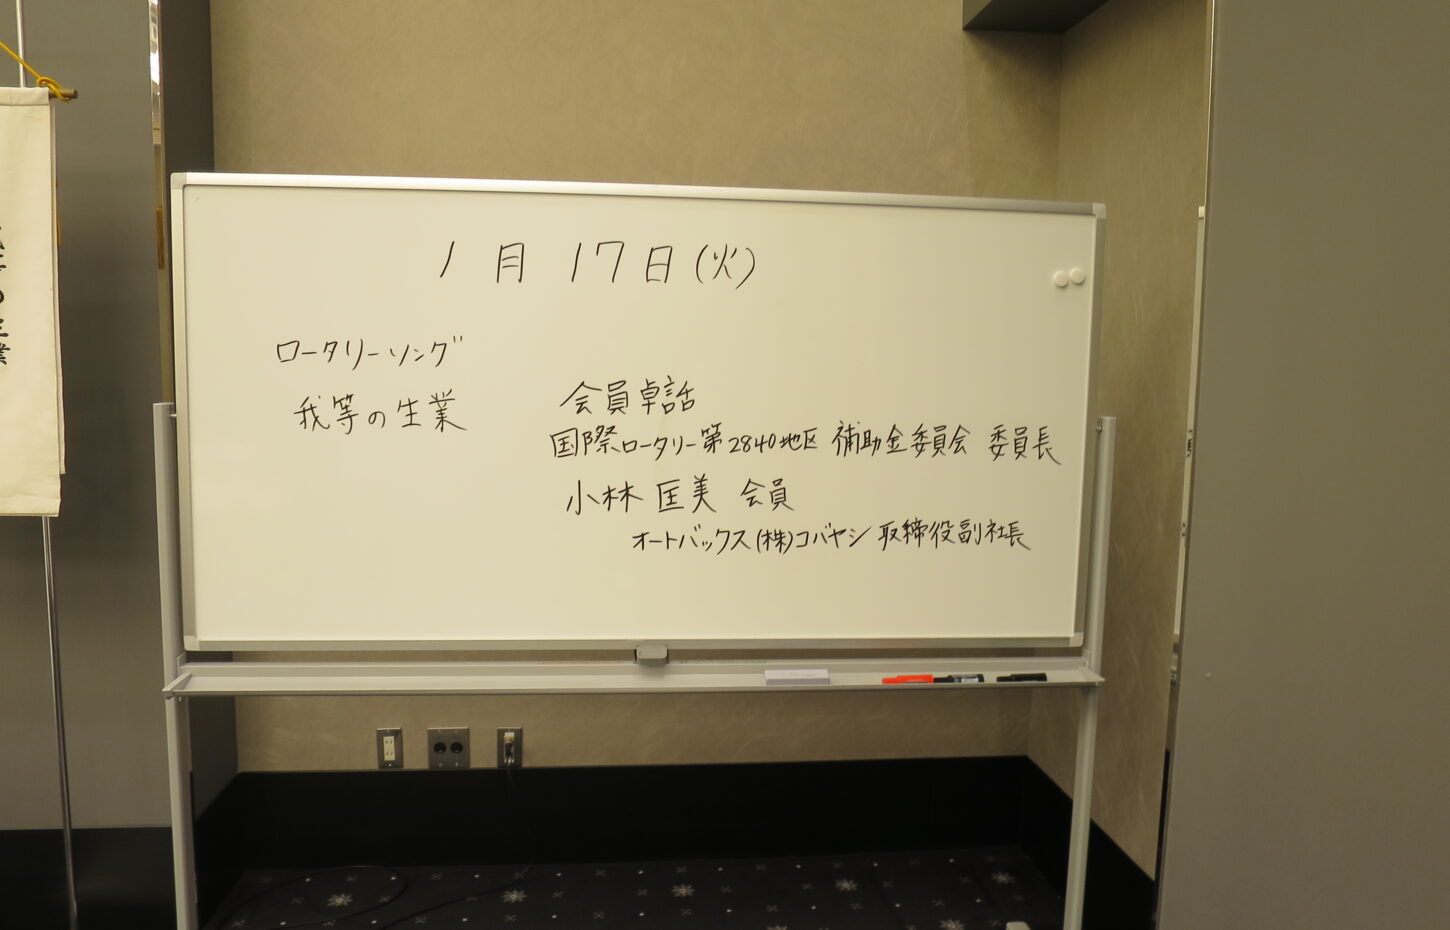 1月17日(火)
ロータリーソング
我等の生業
会員卓話
国際ロータリー第2840地区 補助金委員会 委員長
小林 匡美 会員
オートバックス(株)コバヤシ 取締役副社長